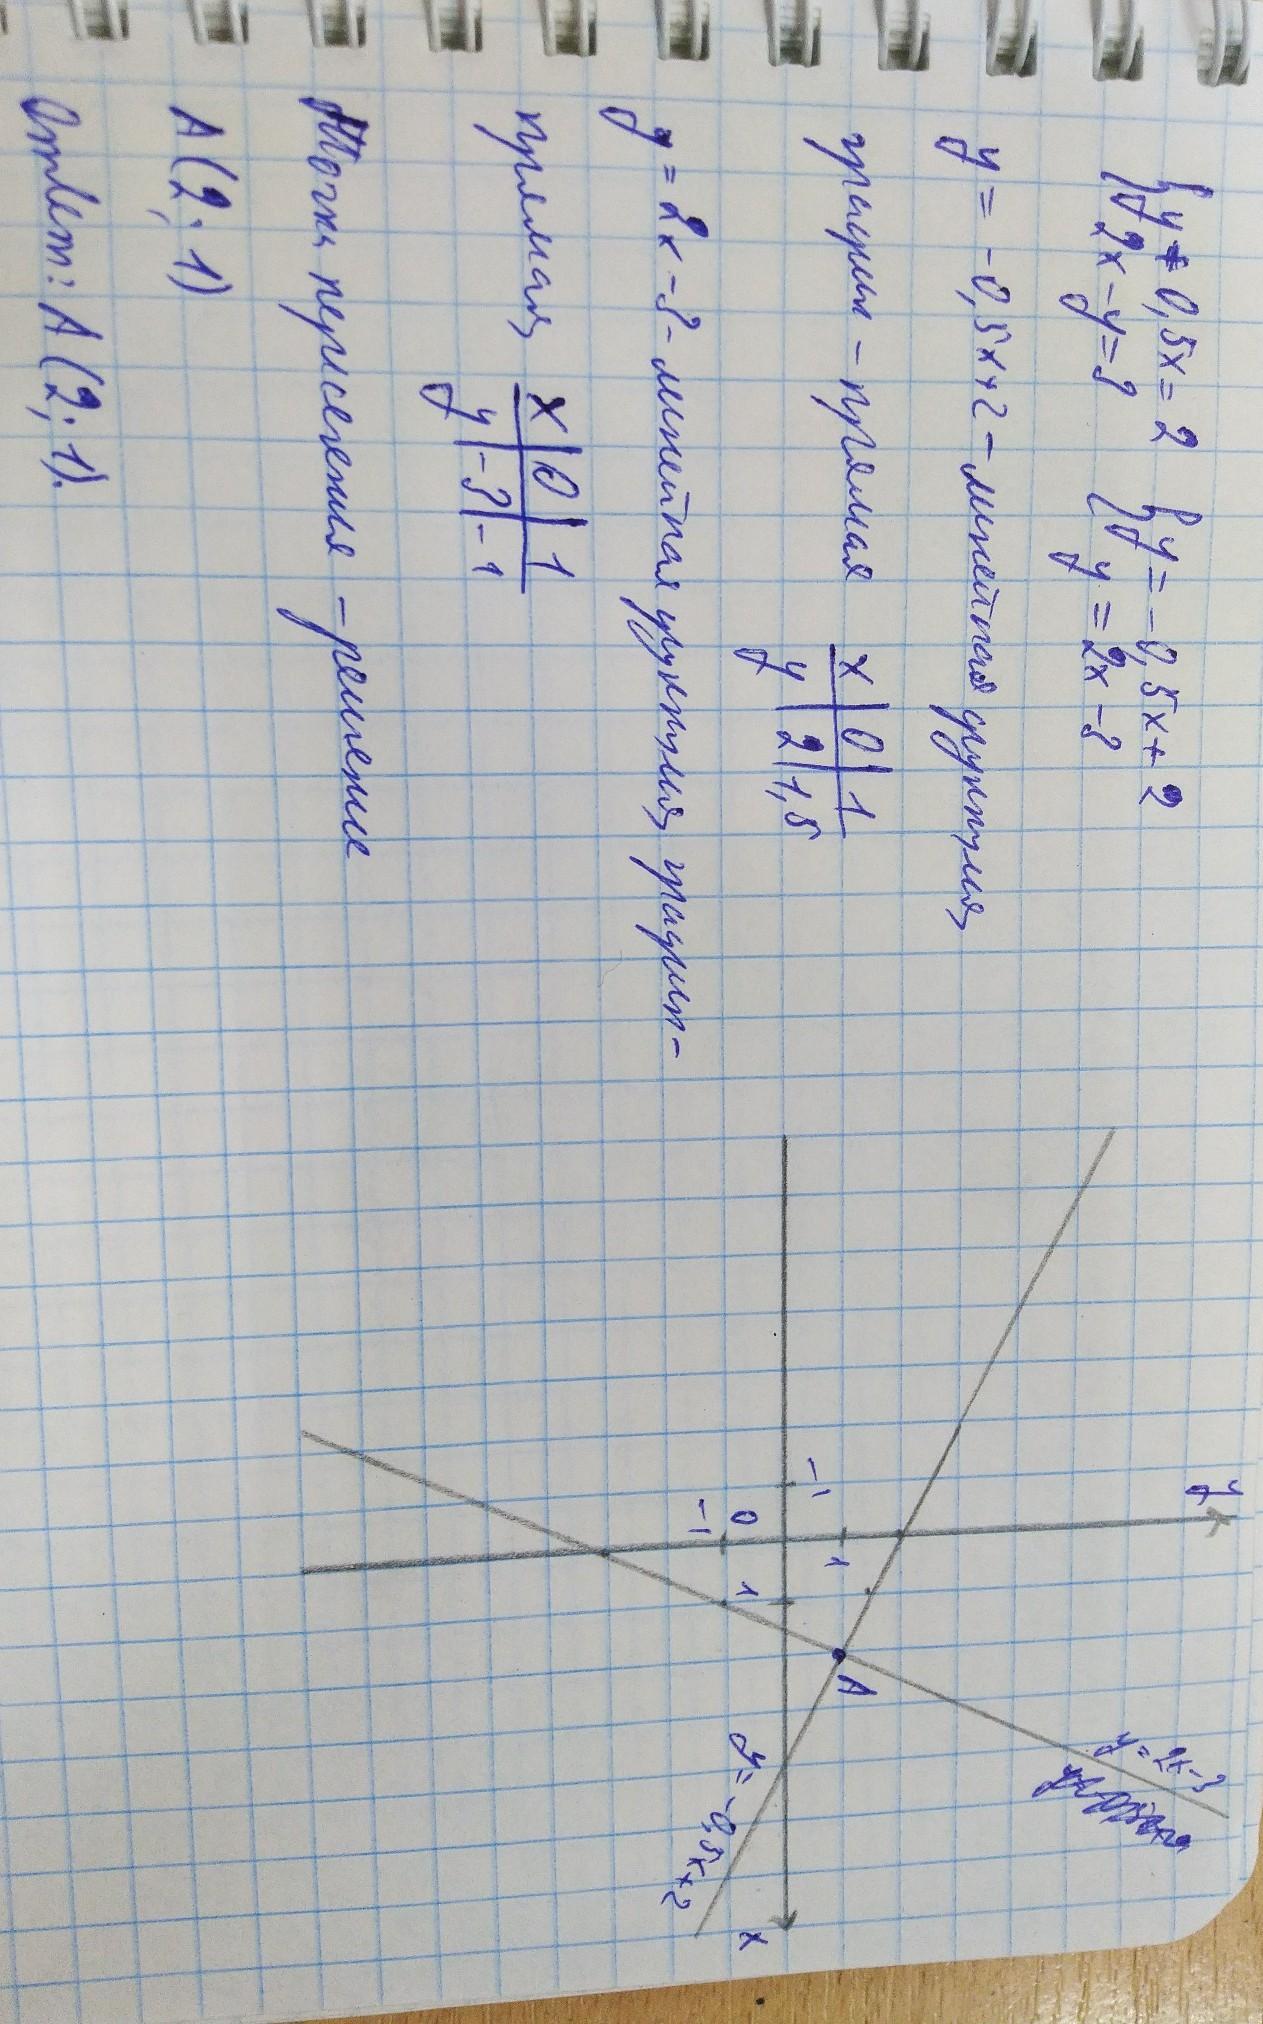 { y + 0,5x = 2 { y = -0,5x + 2
{ 2x - y = 3 { y = 2x - 3
y = -0,5x+2 - линейная функция,
график - прямая
x | 0 | 1
y | 2 | 1,5
y = 2x - 3 - линейная функция, график -
прямая,
x | 0 | 1
y | -3 | -1
Точка пересечения - решение
A(2; 1)
Ответ: A(2; 1).
y
y = 2x-3
1
-1
A
0
1
-1
y = -0,5x+2
x